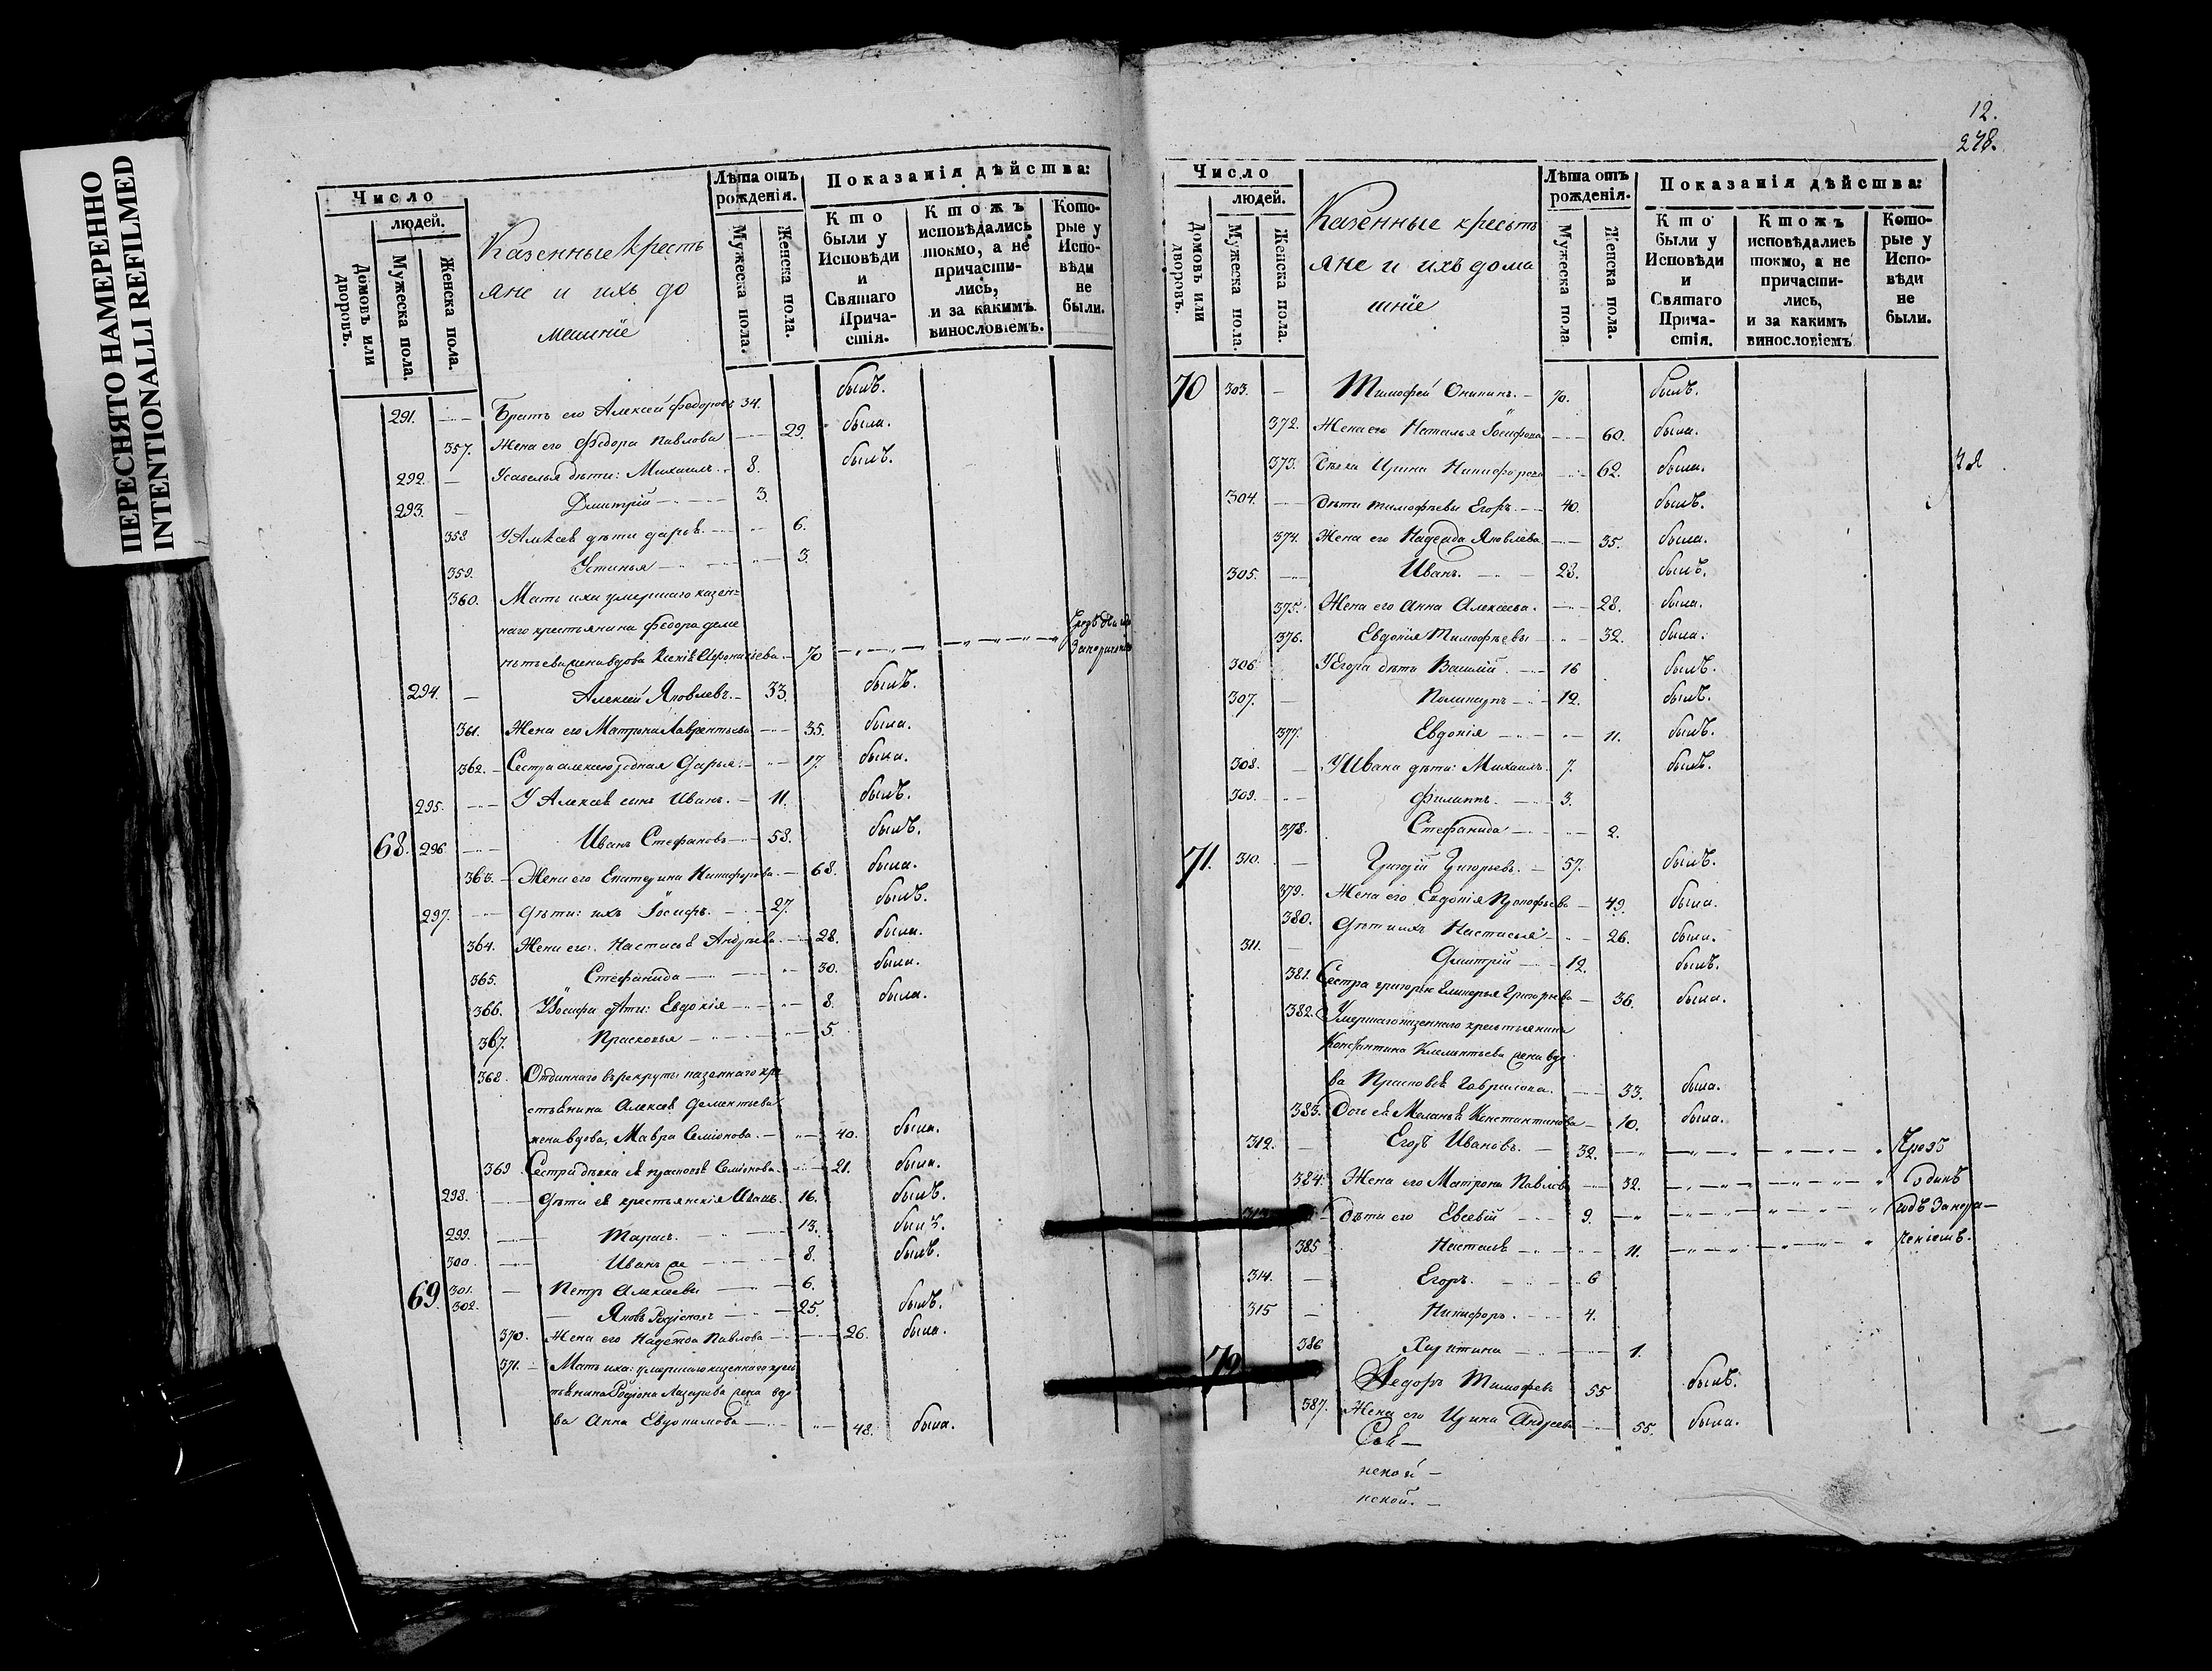 ПЕРЕСНЯТО НАМЕРЕННО
INTENTIONALLI REFILMED
Число
людей.
Домовъ или дворовъ.
Мужеска пола.
Женска пола.
Казенные кресть
яне и ихъ до
машніе
Лѣта отъ рожденія.
Мужеска пола.
Женска пола.
Показанія дѣйства:
Кто были у Исповѣди и Святаго Причастія.
Ктожъ исповѣдались токмо, а не причастились, и за какимъ винословіемъ.
Которые у Исповѣди не были.
291. Братъ его Алексей Федоровъ 34. былъ.
357. Жена его Федора Павлова 29. была.
292. дѣти: Михаилъ 8. былъ.
293. Дмитрій 3.
358 У Алексея дѣти Дарья 6.
359. Устинья 3.
360. Мать ихъ умершаго казен=
наго крестьянина Федора деме
вдова 70
294. Алексей Яковлевъ 33. былъ.
361. Жена его Матрона Лаврентьева 35. была.
362. Сестра Алексею родная Дарья 17. была.
295. У Алексея сынъ Иванъ. 11. былъ.
68. 296 Иванъ Стефановъ 58. былъ.
363. Жена его Екатерина Никифорова. 68. была.
297. Дѣти: ихъ Іосифъ. 27. былъ.
364. Жена его: Настасья Андреева 28. была.
365. Стефанида 30. была.
366. У Іосифа дѣти: Евдокія 8. была.
367. Прасковья 5.
368. Отданнаго въ рекруты казеннаго кре
стьянина Алексея Дементьева
жена вдова, Мавра Семіонова. 40. была.
369 Сестра дѣвка Семіонова 21. была.
298. Дѣти ея крестьянскія Иванъ. 16. былъ.
299. Тарасъ. 13. былъ.
300 Иванъ 8. былъ.
69. 301. Петръ Алексеевы 6.
302. Яковъ 25. былъ.
370. Жена его Надежда Павлова 26. была.
371. Мать ихъ: умершаго казеннаго крес
тьянина Родіона Лазарева жена вдо
ва Анна Евдокимова 48. была.
12.
278.
Число
людей.
Домовъ или дворовъ.
Мужеска пола.
Женска пола.
Казенные крестъ
яне и ихъ дома
шніе
Лѣта отъ рожденія.
Мужеска пола
Женска пола.
Показанія дѣйства:
Кто были у Исповѣди и Святаго Причастія.
Ктожъ исповѣдались токмо, а не причастились, и за какимъ винословіемъ
Которые у Исповѣди не были.
70 303. Тимофей 70. былъ.
372. Жена его Наталья Іосифова 60. была.
373. Ирина Никифорова 62. была.
304. Дѣти Тимофеевы Егоръ 40. былъ.
374. Жена его Надежда Яковлева 35. была.
305. Иванъ. 28. былъ.
375. Жена его Анна Алексеева. 28. была.
376. Евдокія Тимофеевы 32. была.
306 У Егора дѣти Василій 16 былъ.
307. 12. былъ.
377. Евдокія 11. былъ.
308. У Ивана дѣти: Михаилъ. 7. былъ.
309. Филиппъ. 3.
378. Стефанида 2.
71. 310. Григорій Григорьевъ. 57. былъ.
379. Жена его Евдокія Прокофьева 49. была.
380. Дѣти ихъ Настасья 26. была.
311. Дмитрій 12. былъ.
381. Сестра Григорью Григорьева 36. была.
382. Умершаго казеннаго крестьянина
Константина Клементьева жена вдо
ва Прасковья Гаврилова. 33. была.
383. Дочь ея Меланья Константинова 10. была.
312. Егоръ Ивановъ. 32. Чрезъ
384. Жена его Матрона Павлова 32. одинъ
313. Дѣти его Евсевій 9. годъ
385 Настасья 11.
314. Егоръ. 6
315 Никифоръ. 4.
386 Харитина 1.
72. Федоръ Тимофеевъ 55 былъ.
387. Жена его Ирина Андреева 55. была.